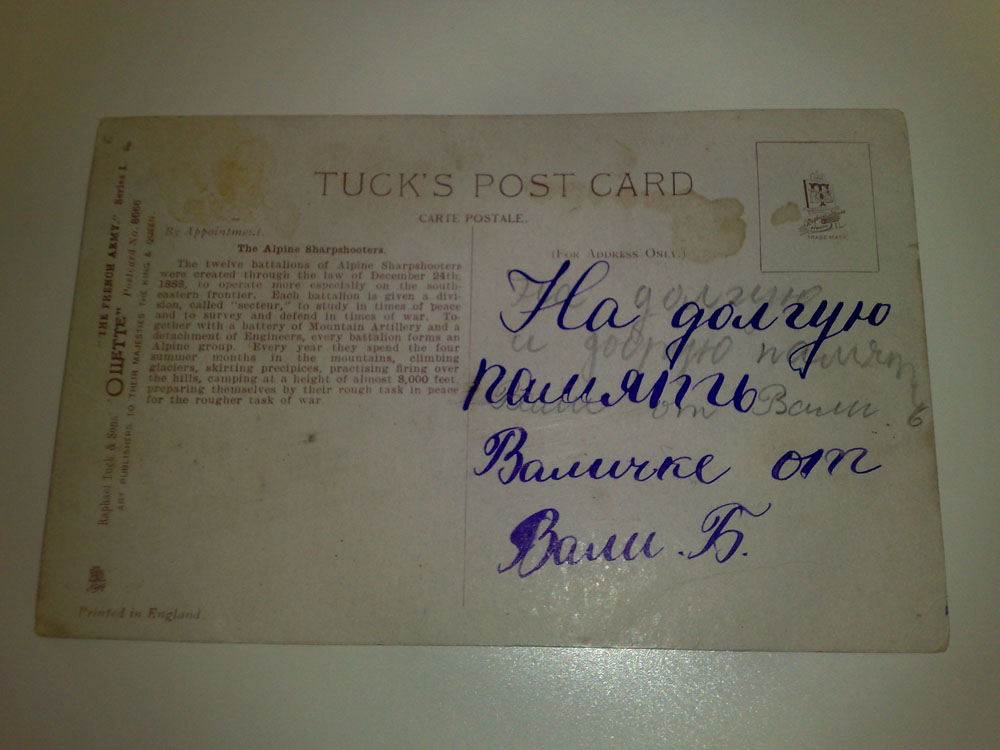 TUCK'S POST CARD
CARTE POSTALE.
By Appointment.
(FOR ADDRESS ONLY.)
TRADE MARK
The Alpine Sharpshooters.
The twelve battalions of Alpine Sharpshooters
were created through the law of December 24th,
1888, to operate more especially on the south-
eastern frontier. Each battalion is given a divi-
sion, called "secteur," to study in times of peace
and to survey and defend in times of war. To-
gether with a battery of Mountain Artillery and a
detachment of Engineers, every battalion forms an
Alpine group. Every year they spend the four
summer months in the mountains, climbing
glaciers, skirting precipices, practising firing over
the hills, camping at a height of almost 8,000 feet,
preparing themselves by their rough task in peace
for the rougher task of war.
Raphael Tuck & Sons' "OILETTE" "THE FRENCH ARMY," Series I.
Postcard No. 8666
ART PUBLISHERS TO THEIR MAJESTIES THE KING & QUEEN.
Printed in England.
На долгую
память
Валичке от
Вали. Б.
На долгую
и добрую память
от Вали. Б